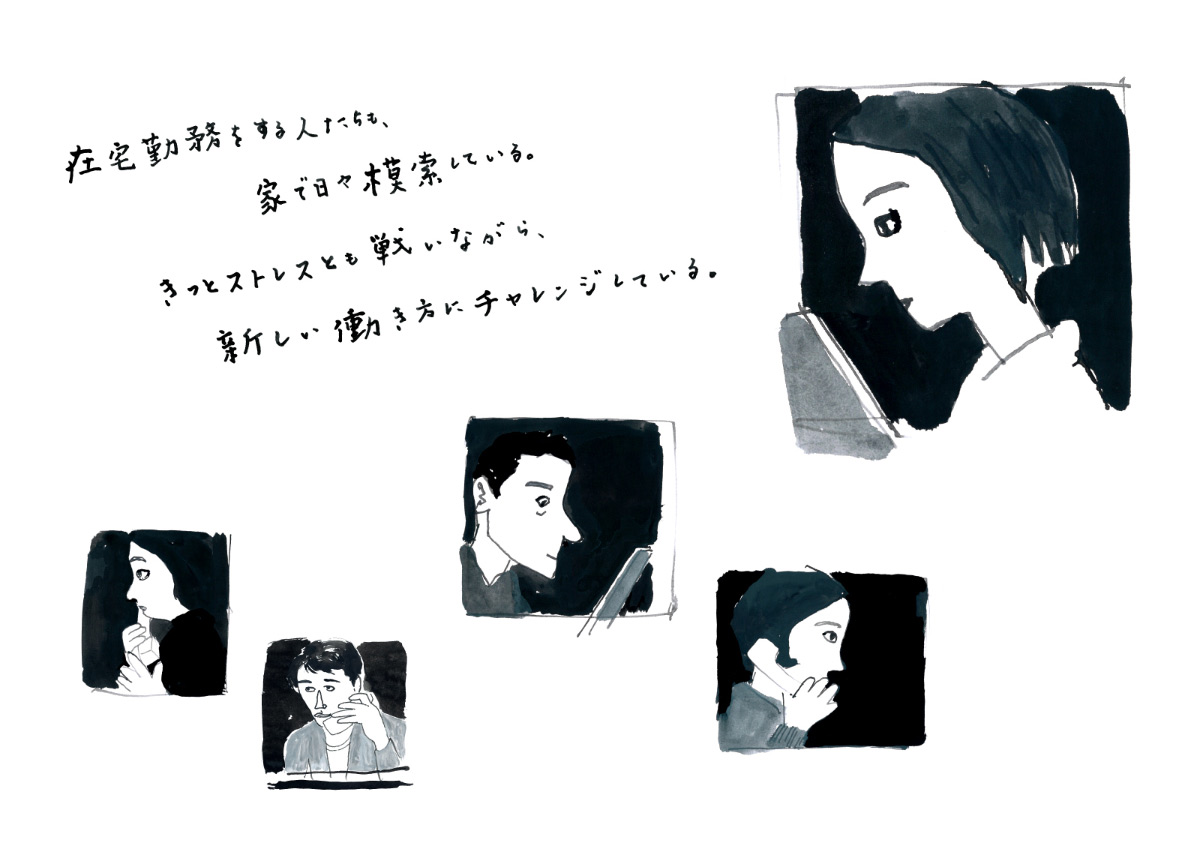 在宅勤務をする人たちも、
家で日々模索している。
きっとストレスとも戦いながら、
新しい働き方にチャレンジしている。